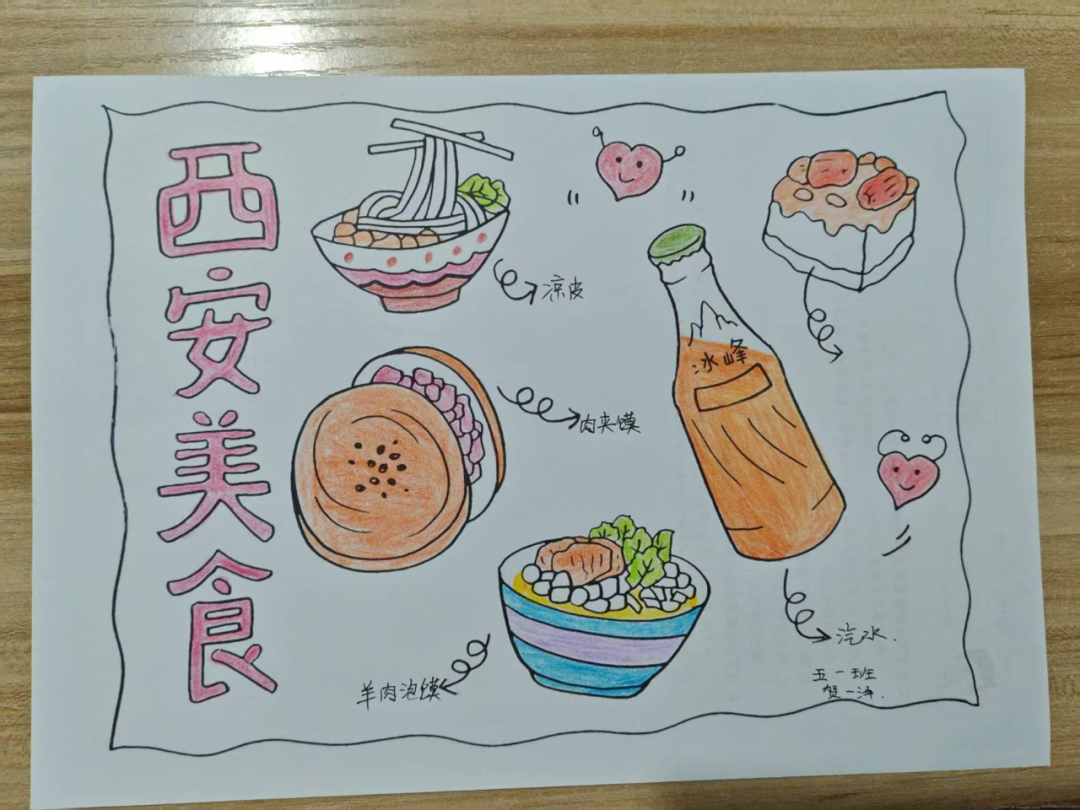 西安美食
凉皮
冰峰
肉夹馍
汽水.
羊肉泡馍
五一班
贺一泽.